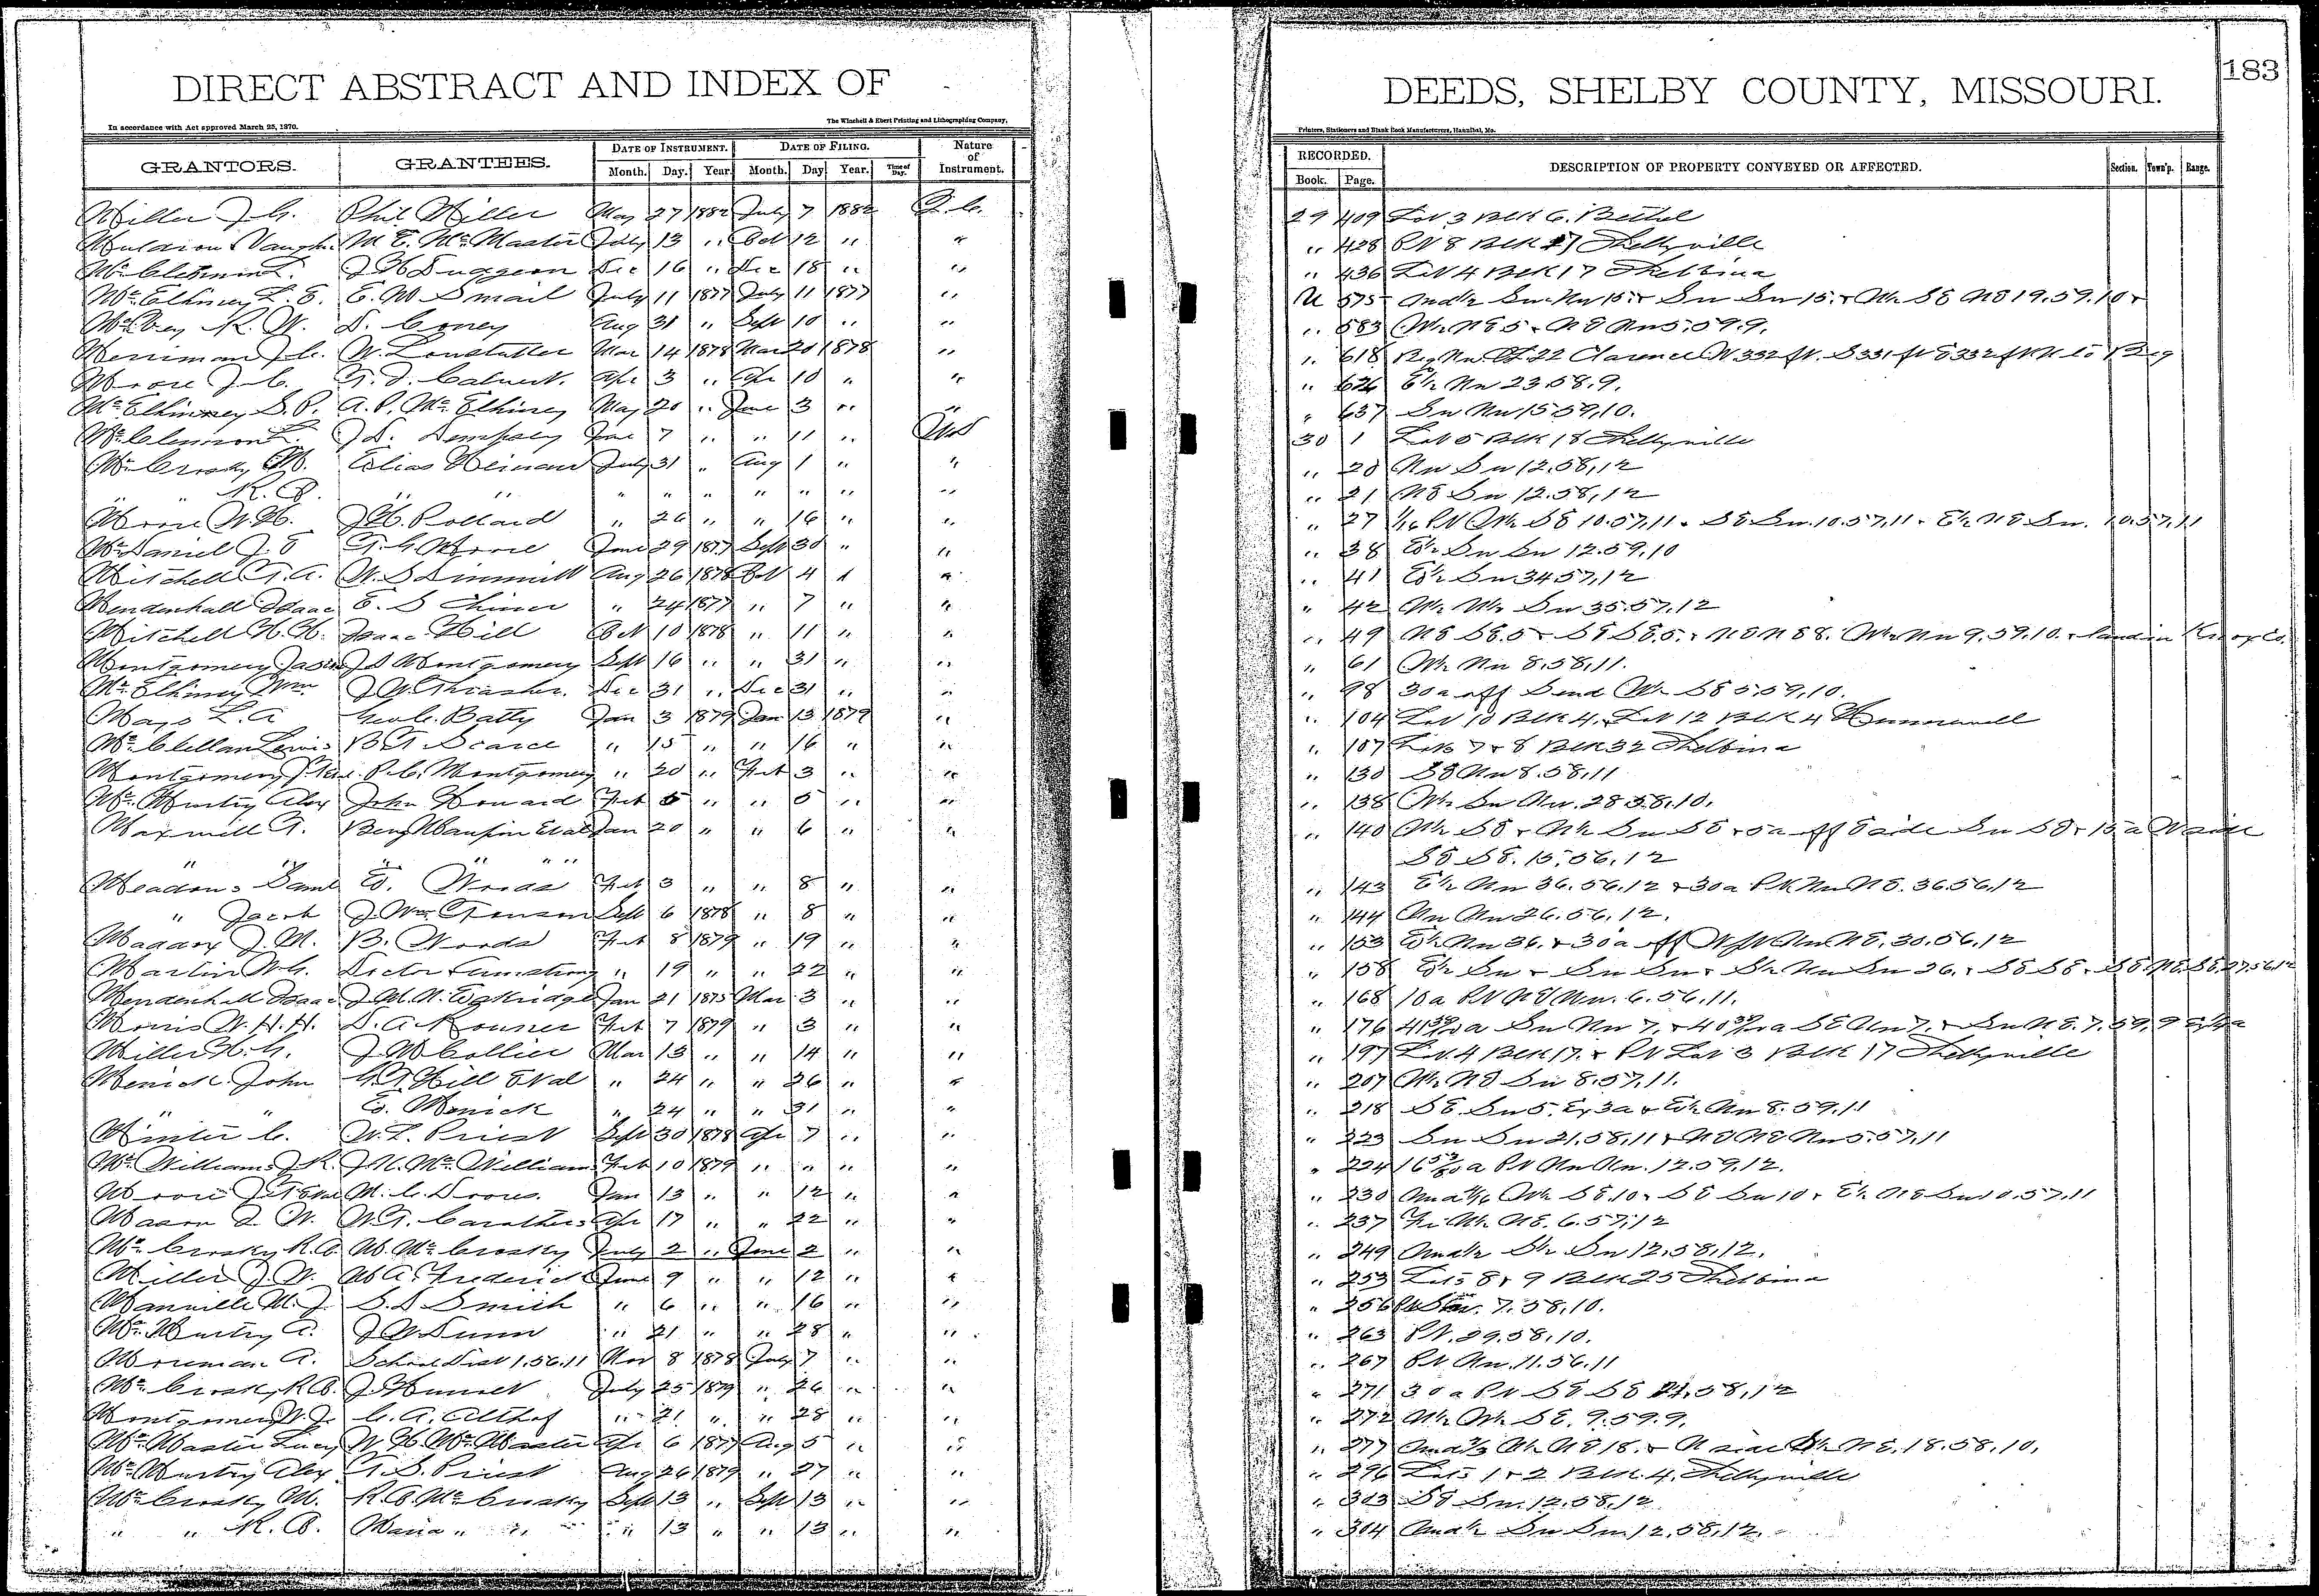 DIRECT ABSTRACT AND INDEX OF
DEEDS, SHELBY COUNTY, MISSOURI.
183
In accordance with Act approved March 25, 1870.
The Winchell & Ebert Printing and Lithographing Company,
Printers, Stationers and Blank Book Manufacturers, Hannibal, Mo.
GRANTORS. GRANTEES. DATE OF INSTRUMENT. DATE OF FILING. Nature of Instrument. RECORDED. DESCRIPTION OF PROPERTY CONVEYED OR AFFECTED. Section. Town'p. Range.
Month. Day. Year. Month. Day Year. Time of Day. Book. Page.
Miller J. G. Phil Miller May 27 1882 July 7 1882 Q.C. 29 409 Lot 3 Blk 6. Bethel
Vaughn M. E. McMaster July 13 " Oct 12 " " " 428 Pt 8 Blk Shelbyville
J H Dungeon Dec 16 " Dec 18 " " " 436 Lot 4 Blk 17 Shelbina
McElhiney L. E. E. W Smail July 11 1877 July 11 1877 " U 575 Und½ Sw Nw 15 + Sw Sw 15 + W½ SE NE 19.59.10 +
R. W. D. Coney Aug 31 " Sept 10 " " " 583 W½ NE 5 + NE Nw 5.59.9.
Merriman J. C. W. Lonstatler Mar 14 1878 Mar 20 1878 " " 618 Beg Nw 22 Clarence W 332 ft. S 331 ft E 332 ft N to Beg
Moore J. C. Calvert. Apr 3 " Apr 10 " " " 626 E½ Nw 23.58.9.
McElhinney S. P. A. P. McElhiney May 20 " June 3 " " " 637 Sw Nw 15.59.10.
McClennon J D. Dempsey June 7 " " 11 " WD 30 1 Lot 5 Blk 18 Shelbyville
McCrosky M. Elias Heinan July 31 " Aug 1 " " " 20 Nw Sw 12.58.12
" " R. B. " " " " " " " " " " 21 NE Sw 12.58.12
Moore W. H. J H. Pollard " 26 " " 16 " " " 27 1/16 Pt W½ SE 10.57.11 + SE Sw. 10.57.11 + E½ NE Sw. 10.57.11
McDaniel J. E T. G Moore June 29 1877 Sept 30 " " " 38 E½ Sw Sw 12.59.10
Mitchell T. A. W. S Dimmitt Aug 26 1878 Oct 4 " " " 41 E½ Sw 34.57.12
Mendenhall Isaac E. S " 24 1877 " 7 " " " 42 W½ W½ Sw 35.57.12
Mitchell H. H. Isaac Hill Oct 10 1878 " 11 " " " 49 NE SE.5 + SE SE.5. + NE NE 8. W½ Nw 9.59.10. + land in Knox Co.
Montgomery Jason J D Montgomery Sept 16 " " 31 " " " 61 W½ Nw 8.58.11.
McElhiney Wm J W Thrasher. Dec 31 " Dec 31 " " " 98 30 a off S end W½ SE 5.59.10.
Mayo L. A Geo C. Batty Jan 3 1879 Jan 13 1879 " " 104 Lot 10 Blk 4. + Lot 12 Blk 4 Hunnewell
McClellan Lewis B T Scarce " 15 " " 16 " " " 107 Lots 7 + 8 Blk 32 Shelbina
Montgomery P. C. Montgomery " 20 " Feb 3 " " " 130 SE Nw 8.58.11
McMurtry Alex John Howard Feb 5 " " 5 " " " 138 W½ Sw Nw. 28.58.10.
Maxwell T. Benj Maupin Etal Jan 20 " " 6 " " " 140 W½ SE + W½ Sw SE + 5 a off E side Sw SE + 15 a W side
" " " " " SE SE. 15.56.12
Meadows Saml E. Woods Feb 3 " " 8 " " " 143 E½ Nw 36.56.12 + 30 a Pt Nw NE. 36.56.12
" Jacob J. Wm Sept 6 1878 " 8 " " " 144 Nw Nw 26.56.12.
Maddox J. M. B. Woods Feb 8 1879 " 19 " " " 153 E½ Nw 36. + 30 a off Nw NE. 30.56.12
Martin W. G. Armstrong " 19 " " 22 " " " 158 E½ Sw + Sw Sw + S½ Nw Sw 26. + SE SE + SE NE SE. 27.56.12
Mendenhall Isaac J. M. N. Eskridge Jan 21 1875 Mar 3 " " " 168 10 a Pt NE Nw. 6.56.11.
Morris W. H. H. D. A Rouner Feb 7 1879 " 3 " " " 176 Sw Nw 7. + SE Nw 7. + Sw NE. 7.59.9
Miller H. G. J W Collier Mar 13 " " 14 " " " 197 Lot 4 Blk 17. + Pt Lot 3 Blk 17 Shelbyville
John Hill Etal " 24 " " 26 " " " 207 W½ NE Sw 8.57.11.
" " E. " 24 " " 31 " " " 218 SE. Sw 5. Ex 3 a + E½ Nw 8.59.11
Minter C. W. L. Priest Sept 30 1878 Apr 7 " " " 223 Sw Sw 21.58.11 + NE NE Nw 5.57.11
McWilliams J. R. J. K. McWilliams Feb 10 1879 " " " " " 224 Pt Nw Nw. 12.59.12.
Moore M. C. Drous. Jan 13 " " 12 " " " 230 Und 1/16 W½ SE.10 + SE Sw 10 + E½ NE Sw 10.57.11
Mason W. T. Carothers Apr 17 " " 22 " " " 237 Fr W½ NE. 6.57.12
McCrosky R. B. M. McCrosky July 2 " June 2 " " " 249 Und½ S½ Sw 12.58.12.
Miller J. W. M A. Frederick June 9 " " 12 " " " 253 Lots 8 + 9 Blk 25 Shelbina
Manville M. J. S. D Smith " 6 " " 16 " " " 256 Pt 7.58.10.
McMurtry A. J W Dunn " 21 " " 28 " " " 263 Pt. 29.58.10.
A. School Dist 1.56.11 Nov 8 1878 July 7 " " " 267 Pt Nw. 11.56.11
McCrosky R. B. J Hunsel July 25 1879 " 26 " " " 271 30 a Pt SE SE 21.58.12
Montgomery W. J. C. A. Althof " 21 " " 28 " " " 272 W½ W½ SE. 9.59.9.
McMaster Lucy W H. McMaster Apr 6 1877 Aug 5 " " " 277 Und⅔ W½ NE 18. + N side NE. 18.58.10.
McMurtry Alex T. S. Priest Aug 26 1879 " 27 " " " 296 Lots 1 + 2 Blk. 4. Shelbyville
McCrosky M. R. B. McCrosky Sept 13 " Sept 13 " " " 303 SE Sw. 12.58.12
" " R. B. Maria " " " 13 " " 13 " " " 304 Und½ Sw Sw 12.58.12.